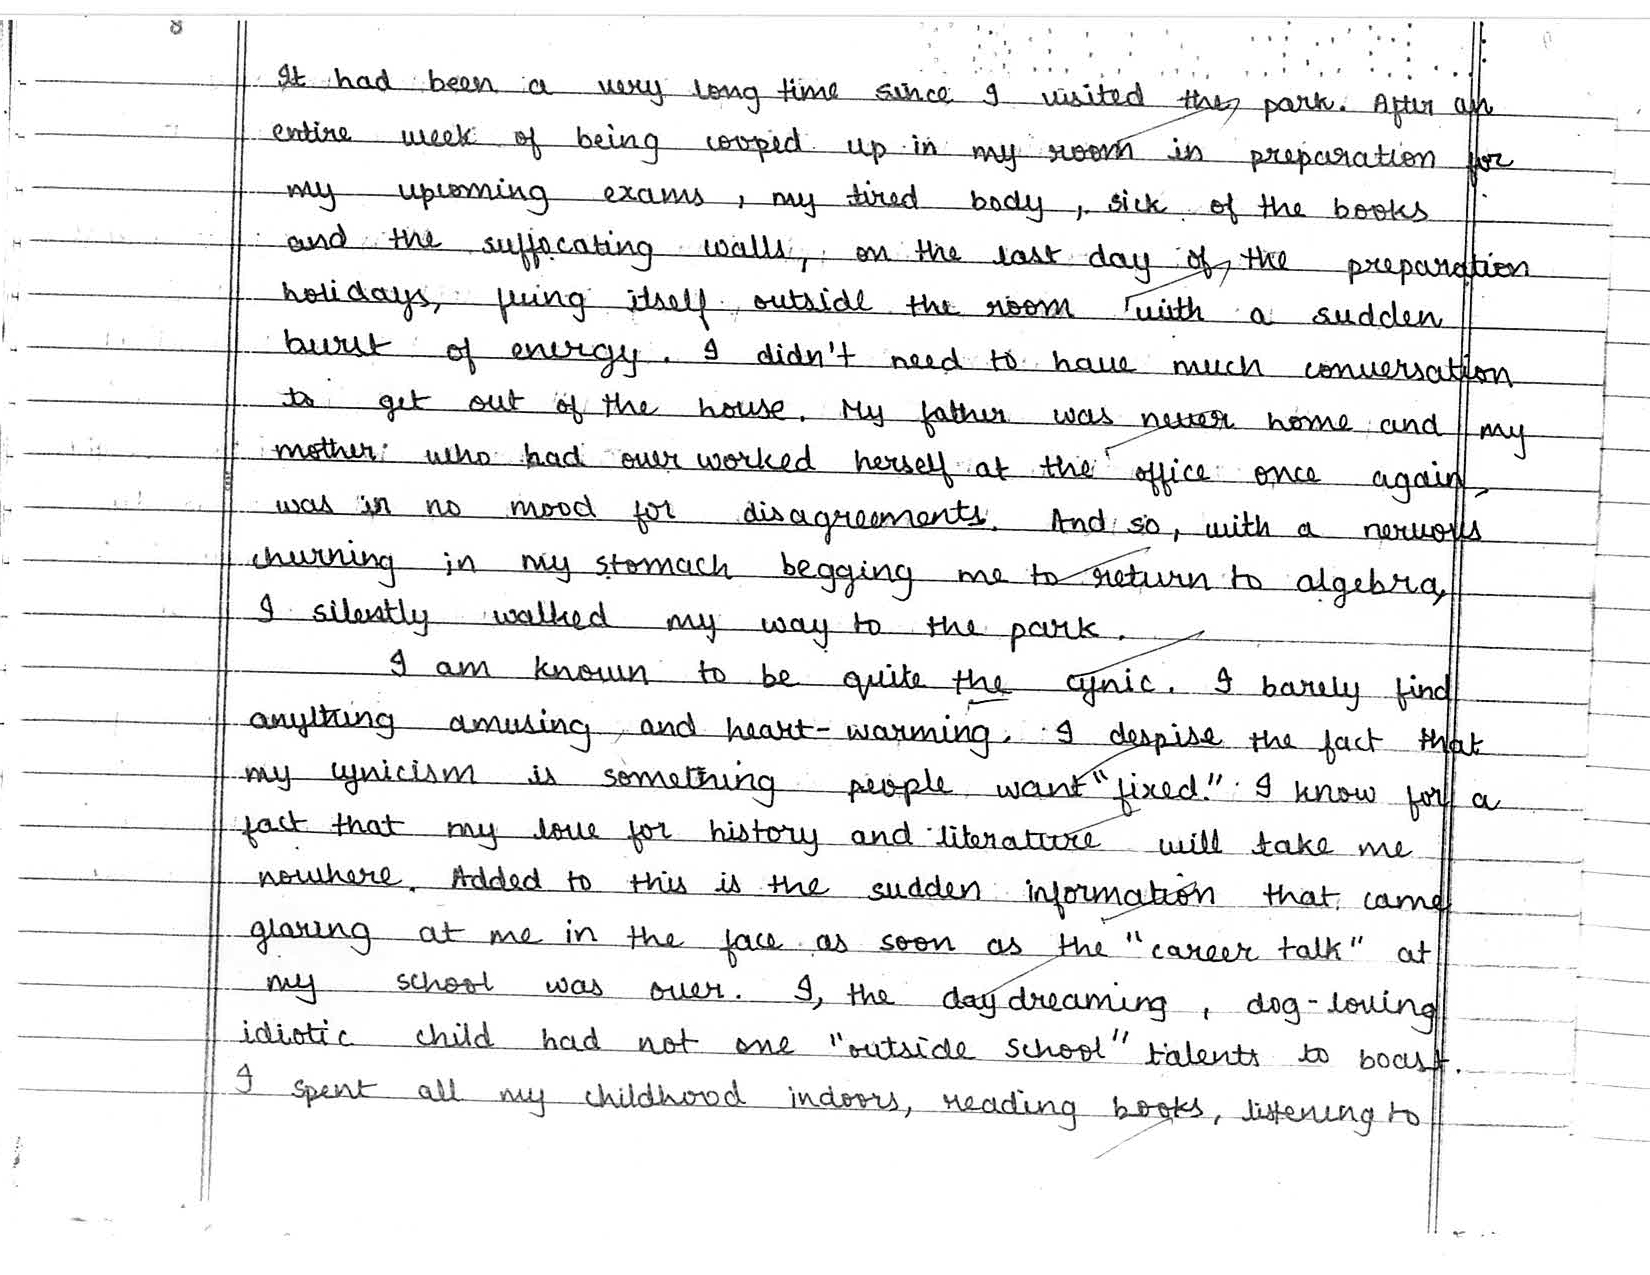 8
It had been a very long time since I visited the park. After an
entire week of being cooped up in my room in preparation for
my upcoming exams, my tired body, sick of the books
and the suffocating walls, on the last day of the preparation
holidays, flung itself outside the room with a sudden
burst of energy. I didn't need to have much conversation
to get out of the house. My father was never home and my
mother who had overworked herself at the office once again,
was in no mood for disagreements. And so, with a nervous
churning in my stomach begging me to return to algebra,
I silently walked my way to the park.
I am known to be quite the cynic. I barely find
anything amusing and heart-warming. I despise the fact that
my cynicism is something people want "fixed." I know for a
fact that my love for history and literature will take me
nowhere. Added to this is the sudden information that came
glaring at me in the face as soon as the "career talk" at
my school was over. I, the daydreaming, dog-loving
idiotic child had not one "outside school" talents to boast.
I spent all my childhood indoors, reading books, listening to